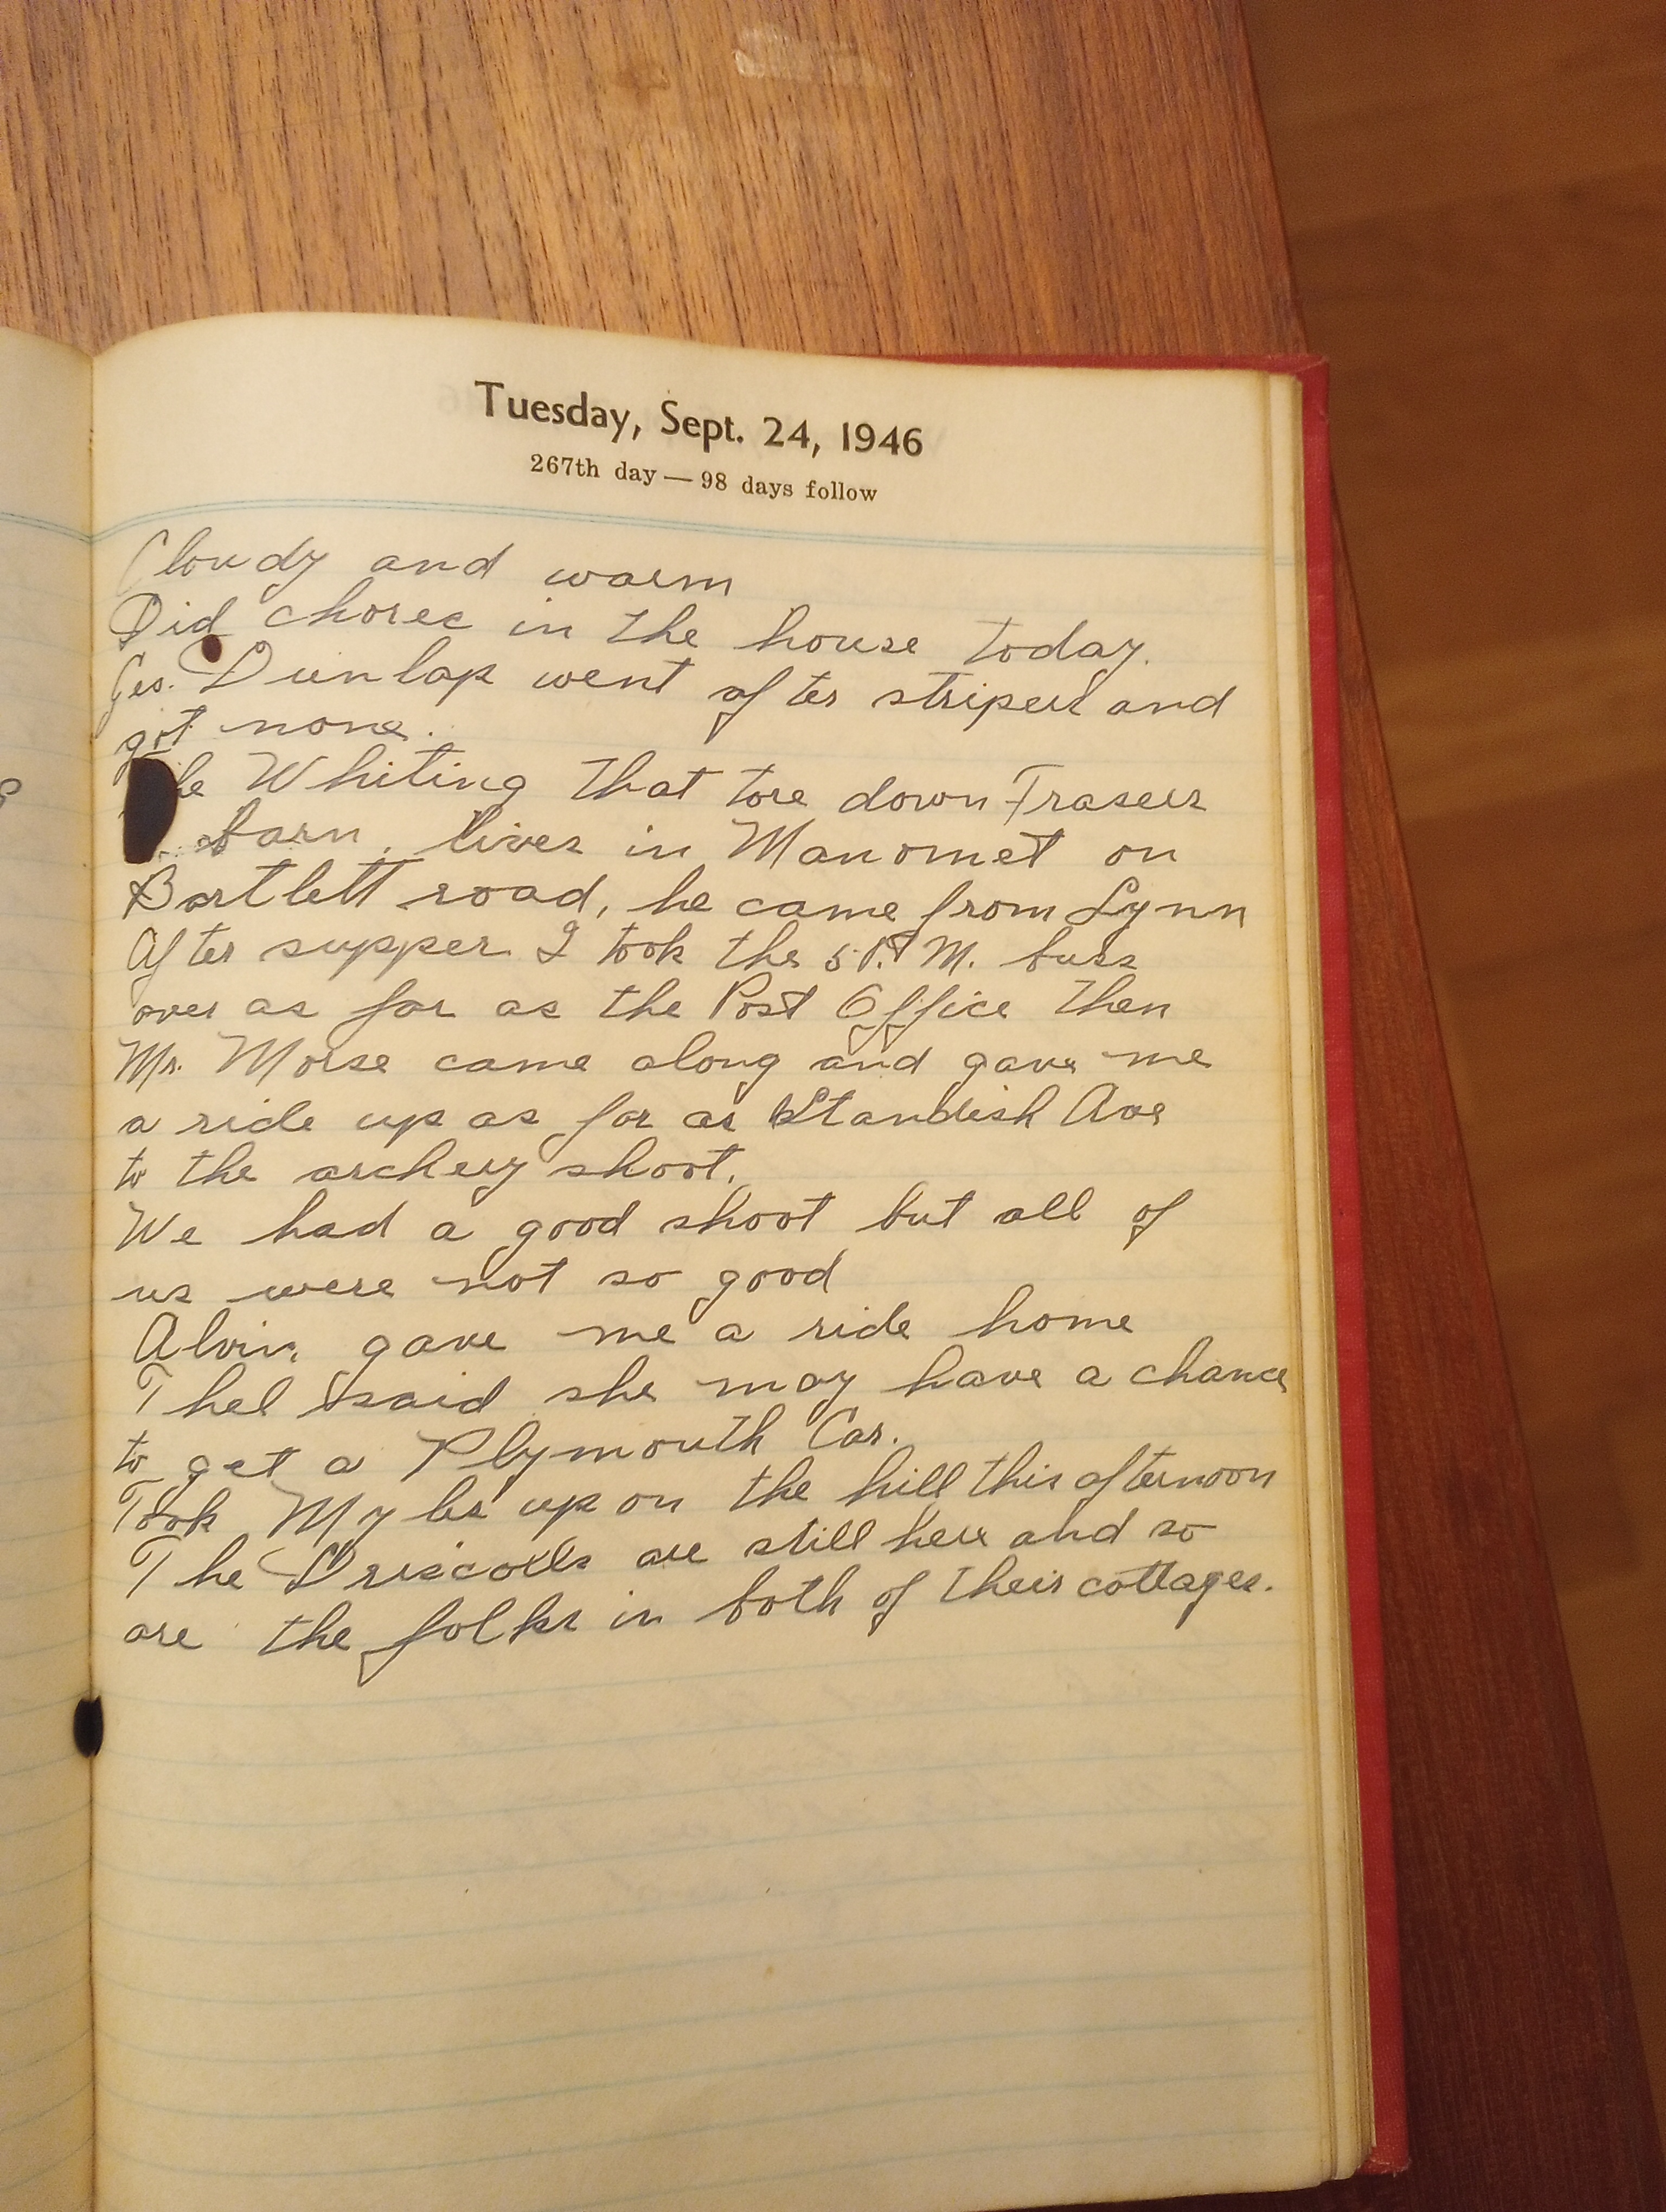 Tuesday, Sept. 24, 1946
267th day — 98 days follow
Cloudy and warm
Did chores in the house today.
Geo. Dunlap went after stripers and
got none.
The Whiting that tore down Frasers
barn, lives in Manomet on
Bartlett road, he came from Lynn
After supper I took the 5 P.M. buss
over as far as the Post Office then
Mr. Morse came along and gave me
a ride up as far as Standish Ave
to the archery shoot.
We had a good shoot but all of
us were not so good
Alvin gave me a ride home
Thel said she may have a chance
to get a Plymouth Car.
Took Myles up on the hill this afternoon
The Driscolls are still here and so
are the folks in both of their cottages.